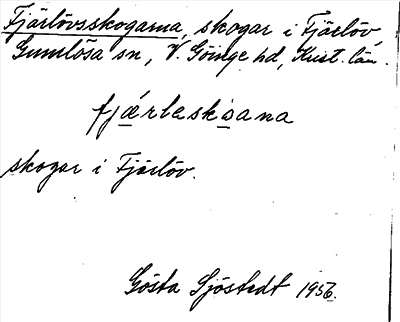 Fjärlövsskogarna, skogar i Fjärlöv,
Gumlösa sn, V. Göinge hd, Krist. län.
fjærlaskoana
skogar i Fjärlöv.
Gösta Sjöstedt 1956.